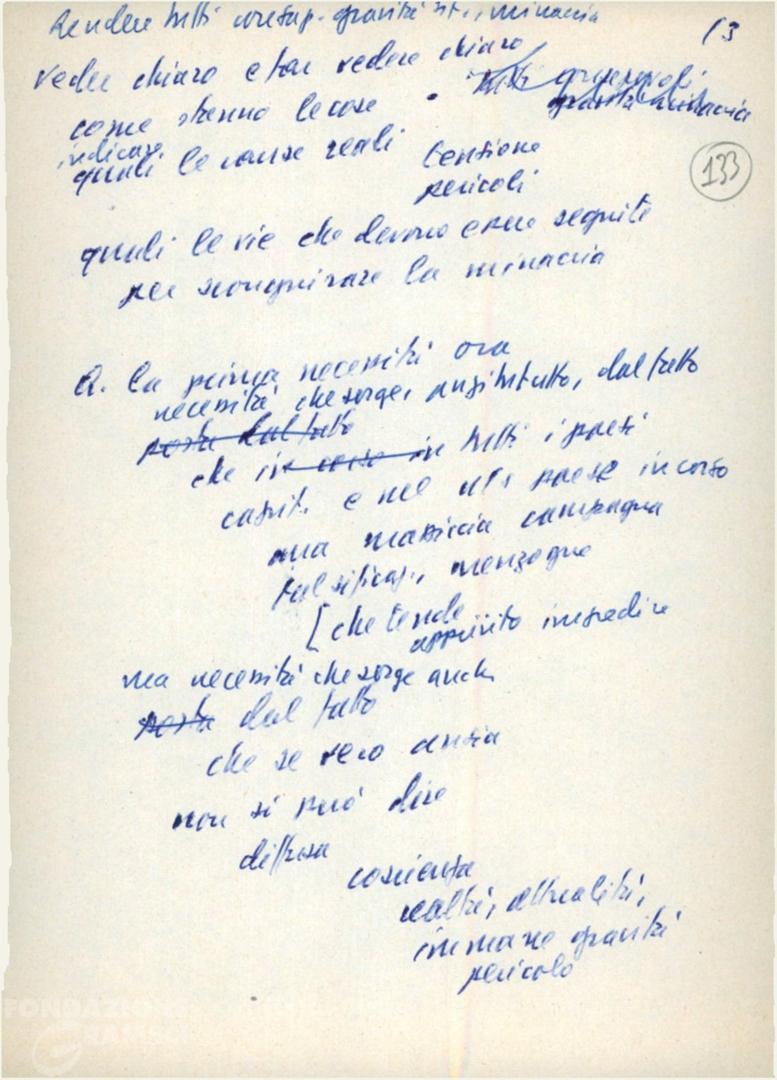 Rendere tutti consap. gravità sit., minaccia
13
veder chiaro e far vedere chiaro
come stanno le cose
tutti consapevoli
gravità minaccia
indicare
quali le cause reali
tensione
pericoli
133
quali le vie che devono essere seguite
per scongiurare la minaccia
a. la prima necessità ora
necessità che sorge, anzitutto, dal fatto
posta dal fatto
che in corso in tutti i paesi
capit. e nel ns paese in corso
una massiccia campagna
falsificaz., menzogne
[che tende
appunto impedire
ma necessità che sorge anche
posta dal fatto
che se vero ansia
non si può dire
diffusa
coscienza
realtà, attualità,
immane gravità
pericolo
FONDAZIONE
GRAMSCI